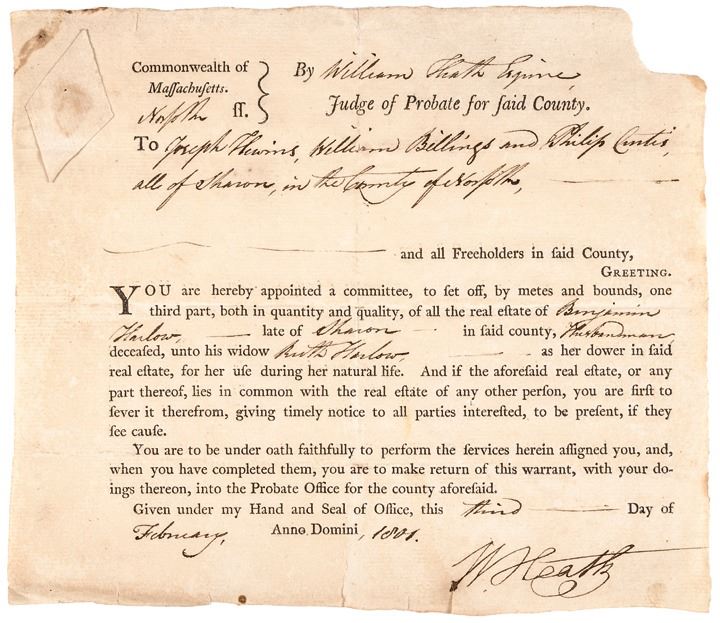 Commonwealth of } By William Heath Esquire,
Maſſachuſetts.
Norfolk ſſ. } Judge of Probate for ſaid County.
To Joseph Hewins, William Billings and Philip Curtis,
all of Sharon, in the County of Norfolk,
and all Freeholders in ſaid County,
GREETING.
YOU are hereby appointed a committee, to ſet off, by metes and bounds, one
third part, both in quantity and quality, of all the real eſtate of Benjamin
Harlow, late of Sharon in ſaid county, Husbandman,
deceaſed, unto his widow Ruth Harlow, as her dower in ſaid
real eſtate, for her uſe during her natural life. And if the aforeſaid real eſtate, or any
part thereof, lies in common with the real eſtate of any other perſon, you are firſt to
ſever it therefrom, giving timely notice to all parties intereſted, to be preſent, if they
ſee cauſe.
You are to be under oath faithfully to perform the ſervices herein aſſigned you, and,
when you have completed them, you are to make return of this warrant, with your do-
ings thereon, into the Probate Office for the county aforeſaid.
Given under my Hand and Seal of Office, this third Day of
February, Anno Domini, 1801.
W. Heath